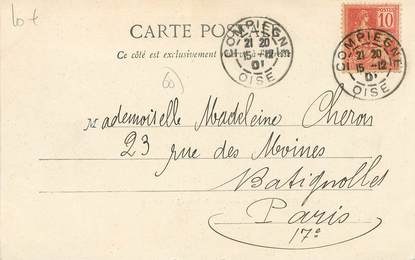 10 €
CARTE POSTALE
Ce côté est exclusivement
COMPIEGNE
21 20
15 -12
01
OISE
10
COMPIEGNE
21 20
15 -12
01
OISE
60
Mademoiselle Madeleine Cheron
23 rue des Moines
Batignolles
Paris
17e